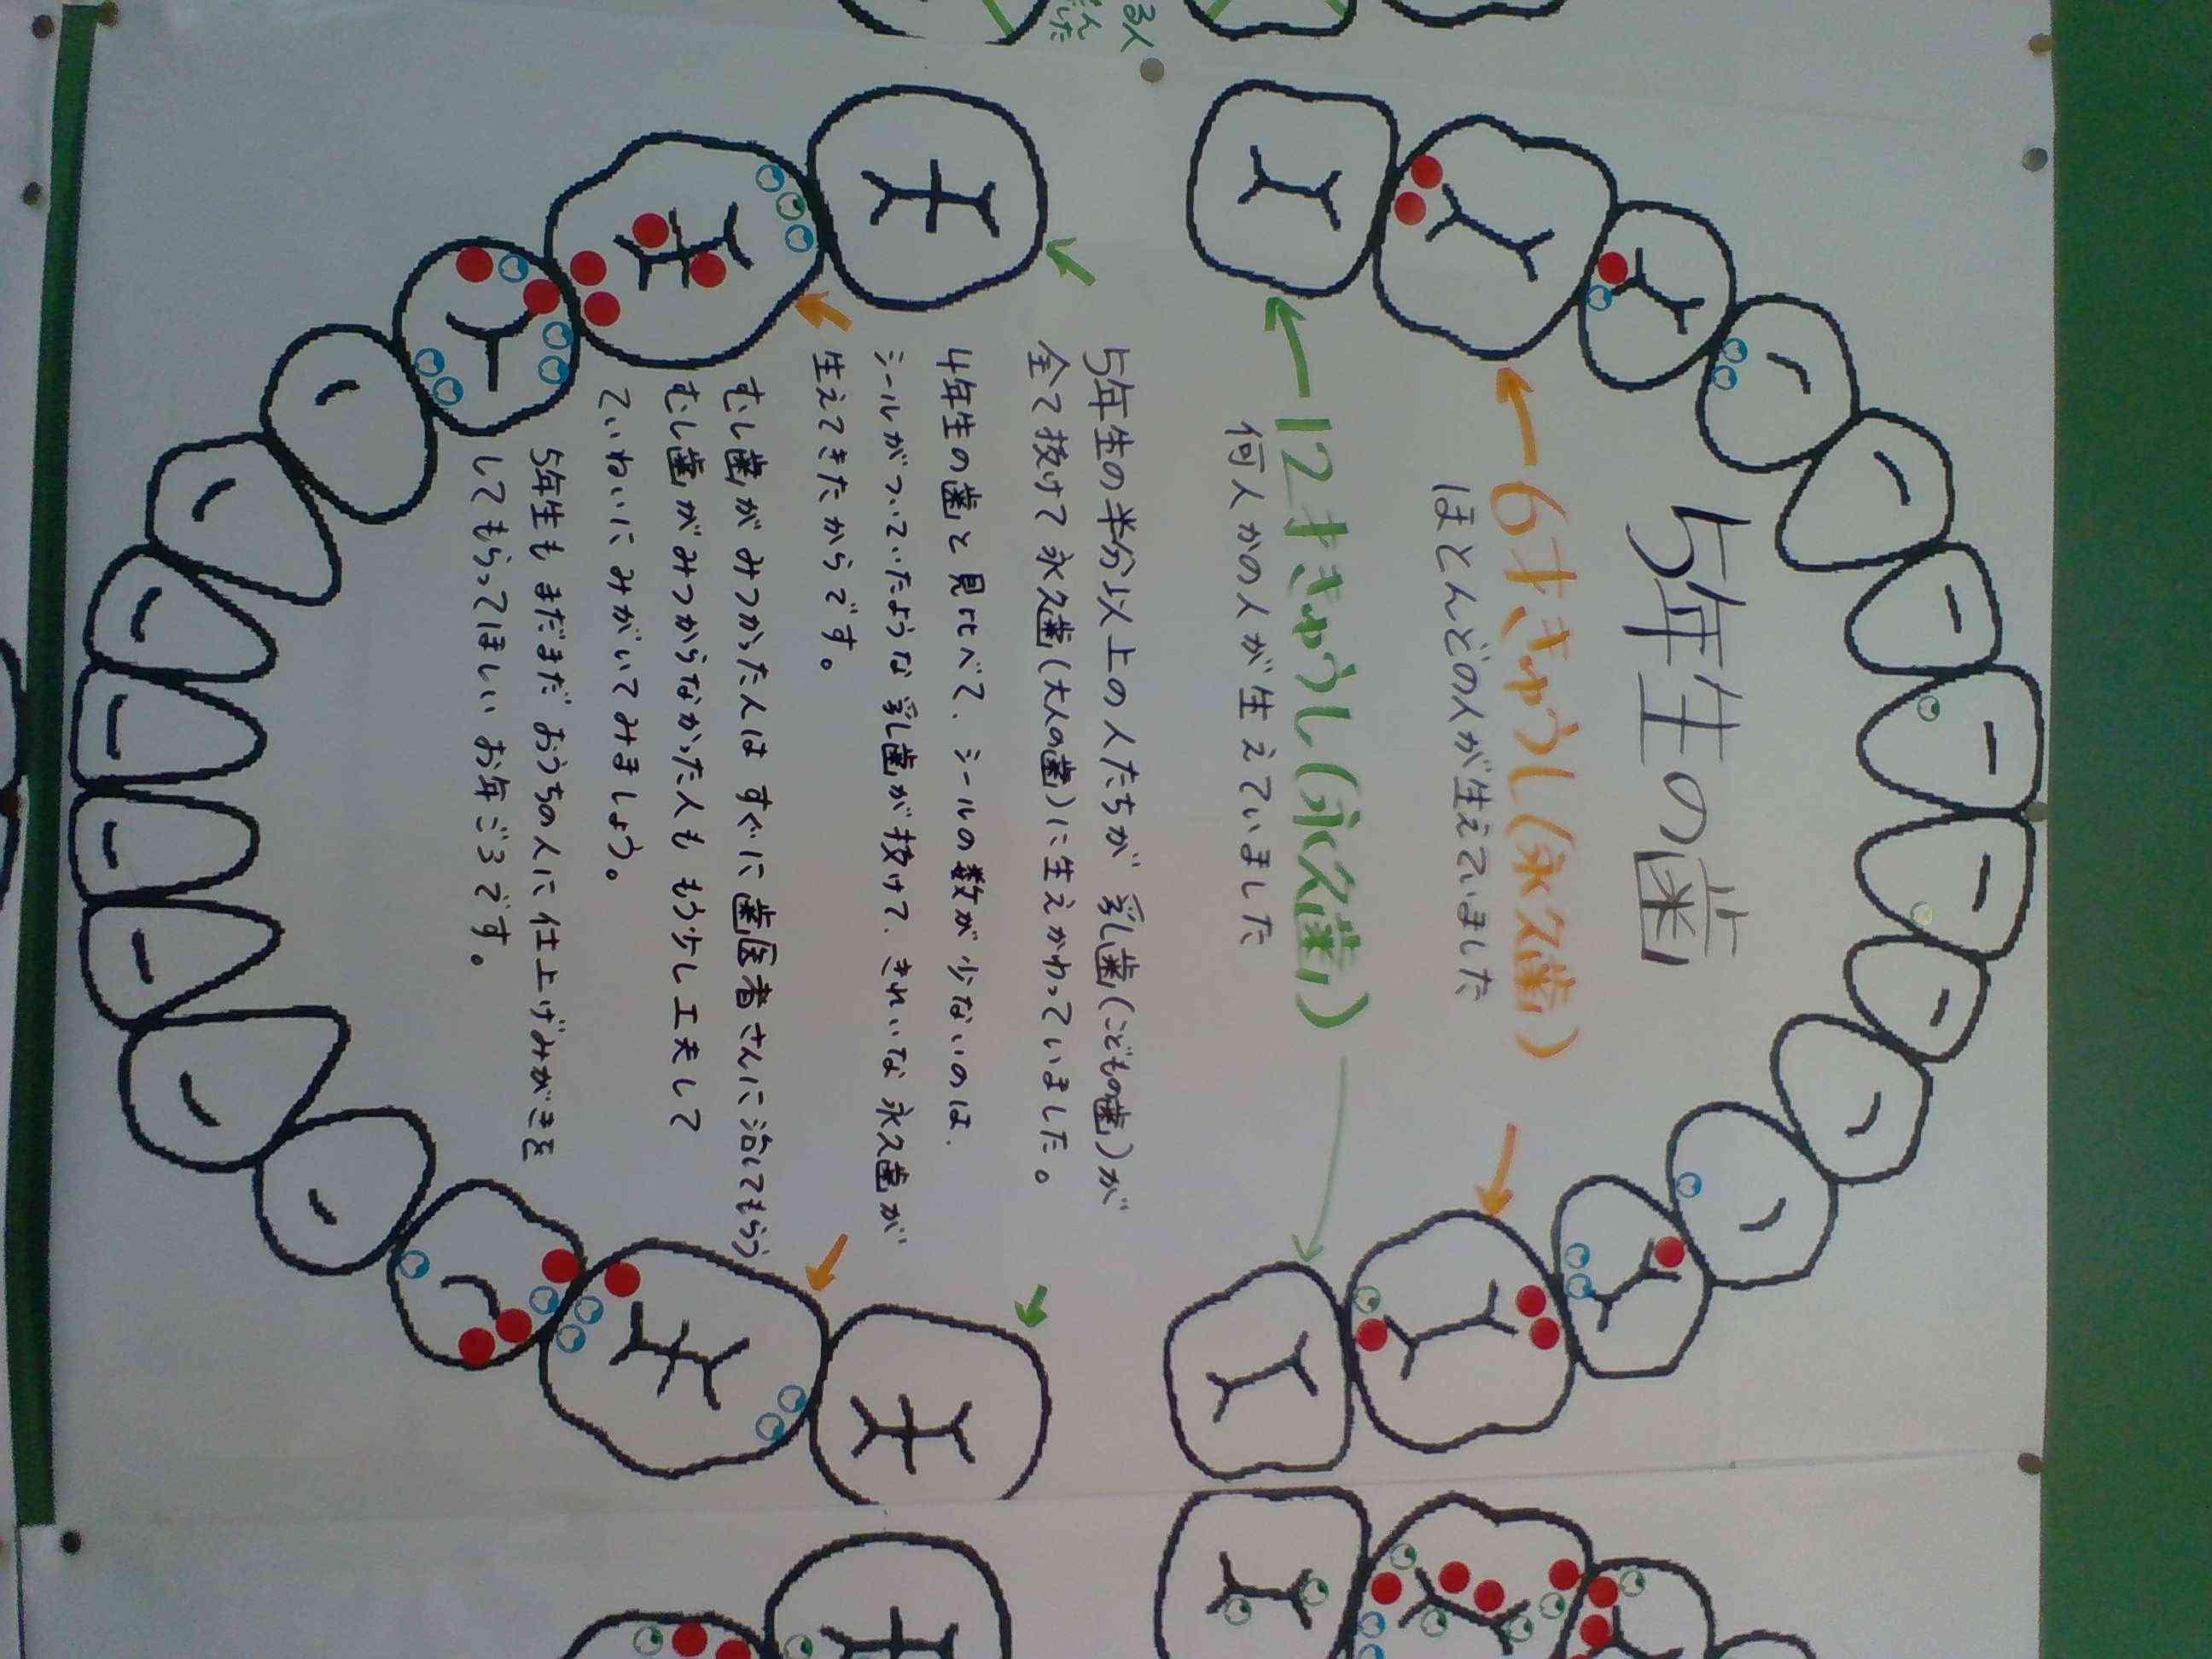 5年生の歯
6才きゅうし(永久歯)
ほとんどの人が生えていました
12才きゅうし(永久歯)
何人かの人が生えていました
5年生の半分以上の人たちが 乳歯(こどもの歯)が
全て抜けて永久歯(大人の歯)に生えかわっていました。
4年生の歯と見比べて、シールの数が少ないのは、
シールがついていたような乳歯が抜けて、きれいな永久歯が
生えてきたからです。
むし歯がみつかった人は すぐに歯医者さんに治してもらう
むし歯がみつからなかった人も もう少し工夫して
ていねいにみがいてみましょう。
5年生も まだまだ おうちの人に仕上げみがきを
してもらってほしい お年ごろです。
る人